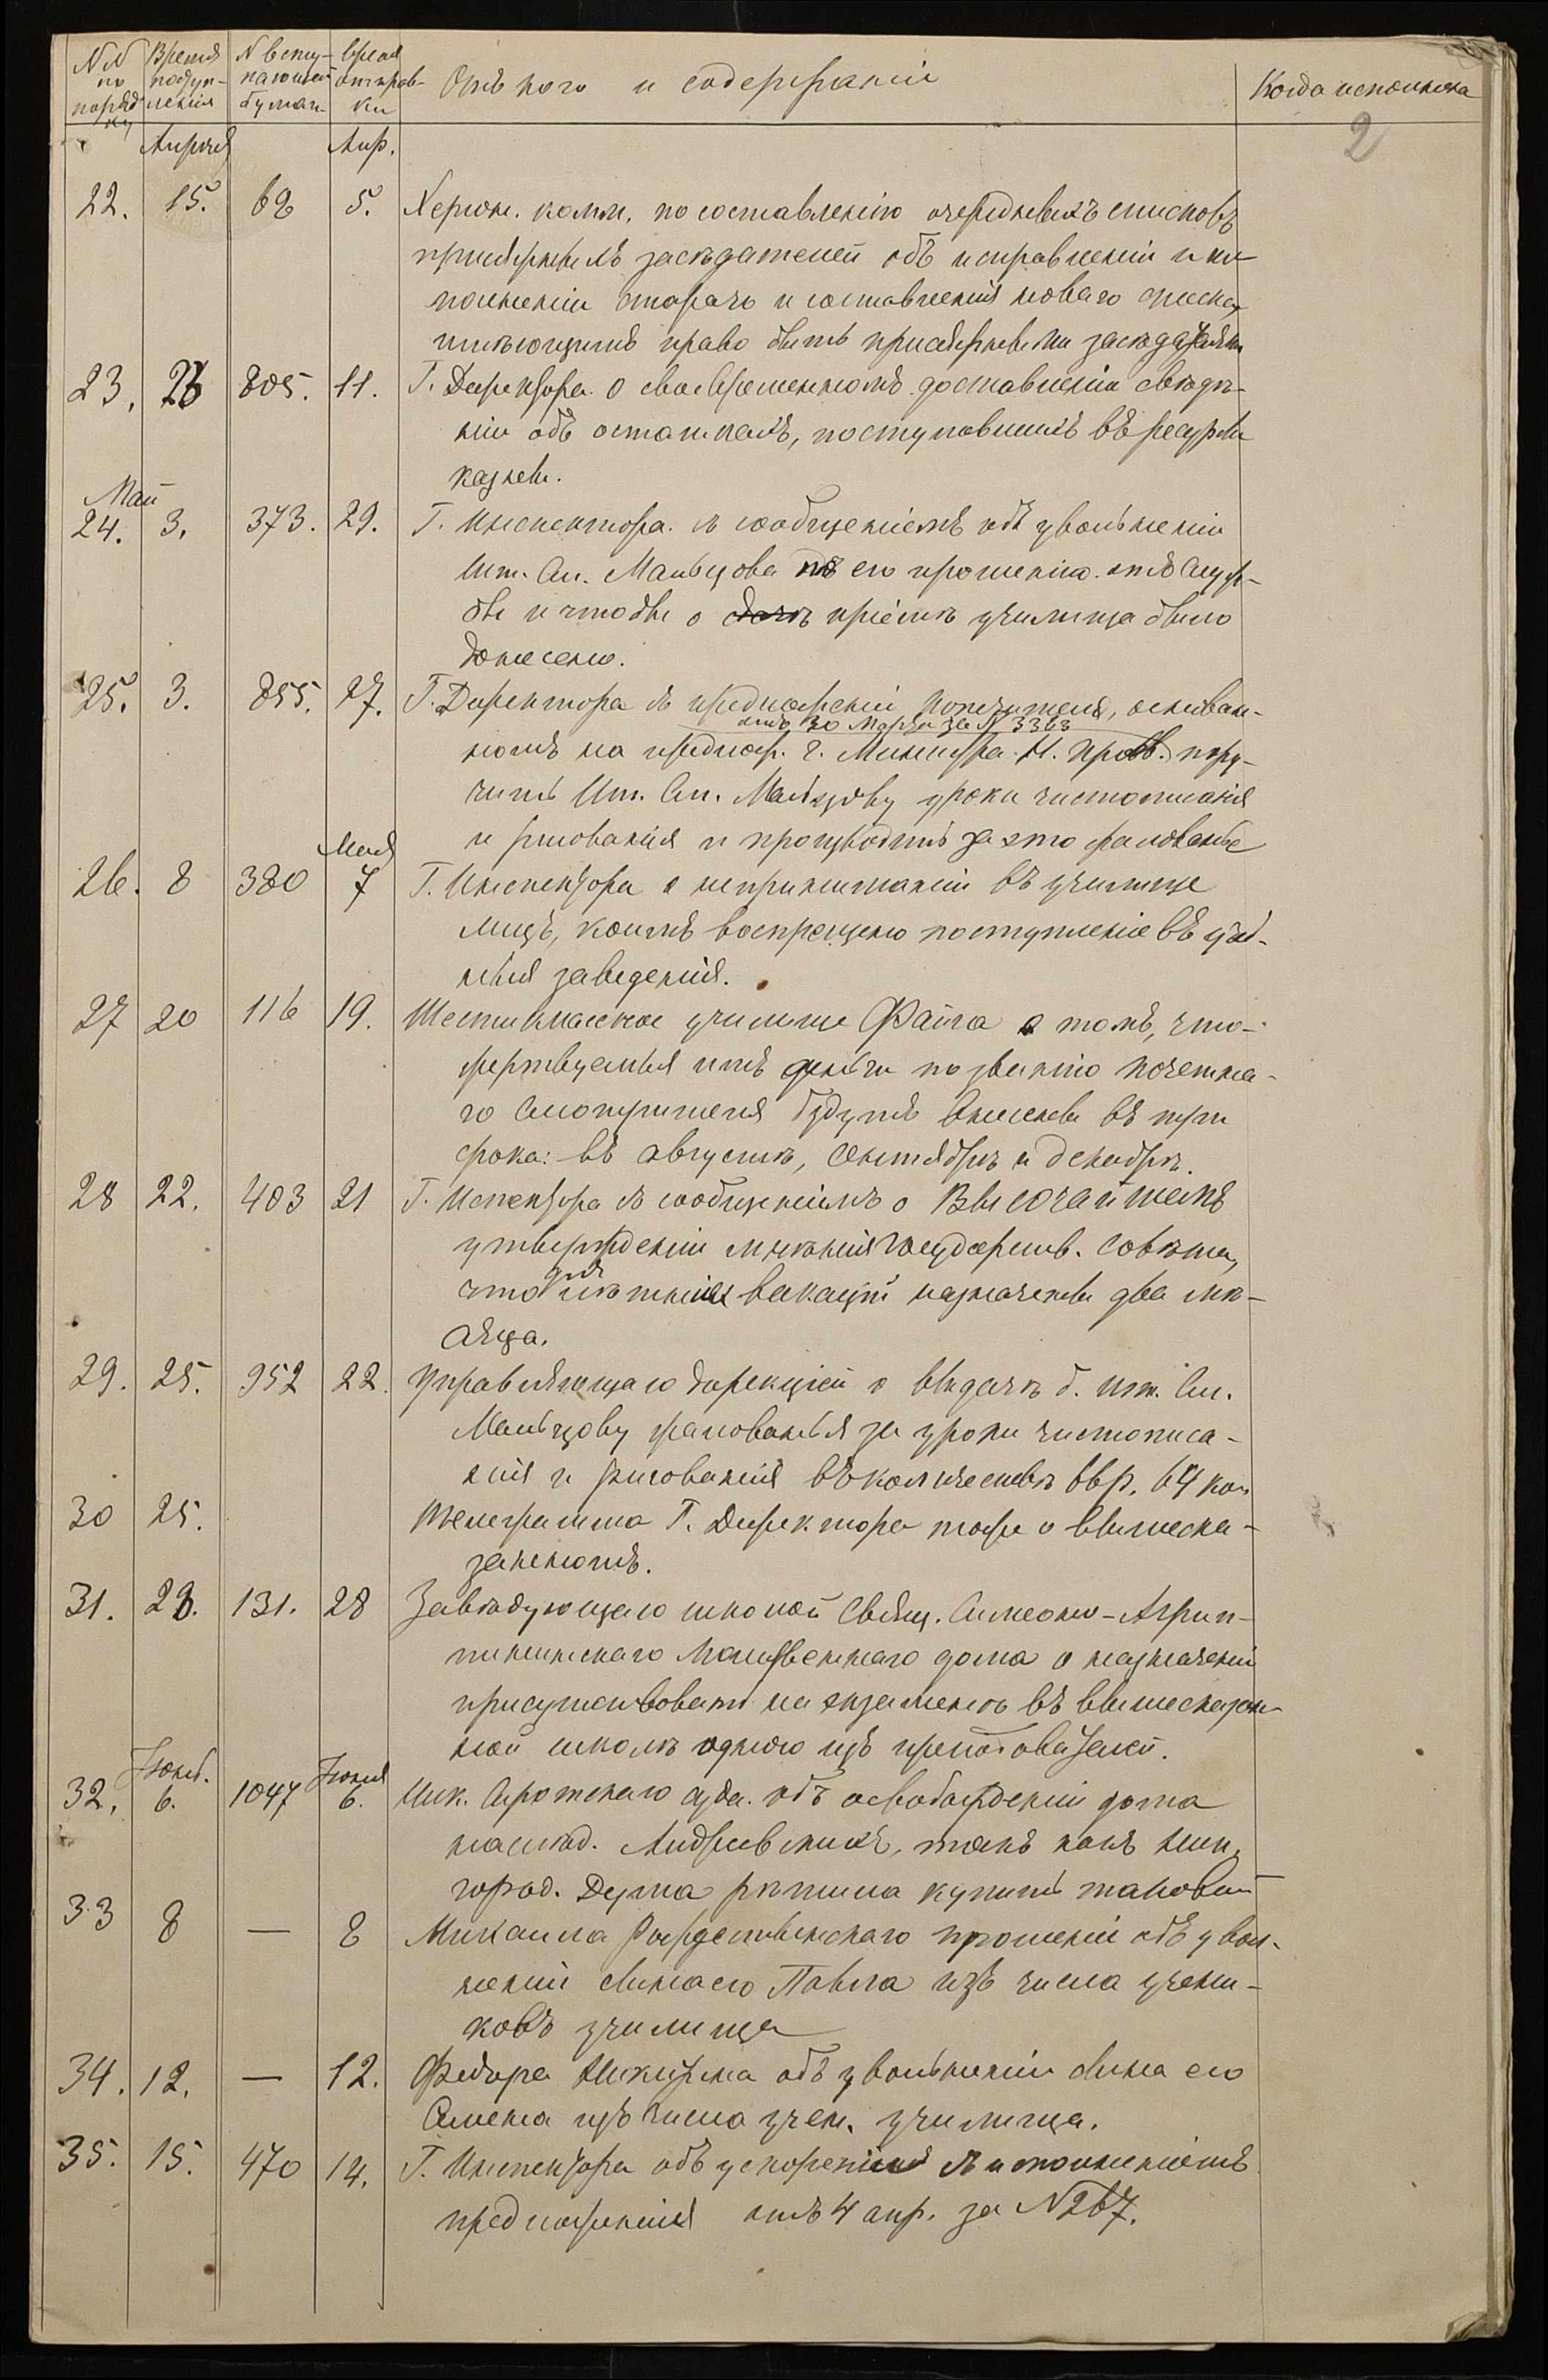 NN по порядку | Время поступления | N вступающей бумаги | Время отправки | Отъ кого и содержаніе | Когда исполнена
2
Апрѣля | Апр.
22. 15. 62 5. Херсон. комм. по составленію очередныхъ списковъ
присяжныхъ засѣдателей объ исправленіи и по
полненіи стараго и составленія новаго списка
имѣющимъ право быть присяжными засѣдателями
23. 26 805. 11. Г. Директора. о своевременномъ доставленіи свѣдѣ-
нiи объ остаткахъ, поступовшихъ въ ресурсы
казны.
Май
24. 3. 373. 29. Г. Инспектора. съ сообщеніемъ объ увольненіи
Шт. См. Мальцова по его прошенію отъ служ-
бы и чтобы о пріемѣ училища было
донесено.
25. 3. 855. 27. Г. Директора съ предложеніи Попечителя, основан-
отъ 30 Марта за N 3363
номъ на предлож. г. Министра Н. Просв. пору-
чить Шт. См. Мальцову уроки чистописанія
и рисованія и производить за это жалованье
Мая
26. 8 380 7 Г. Инспектора о непринитаніи въ училище
лицъ, коимъ воспрещено поступленіе въ учеб-
ныя заведенія.
27 20 116 19. Шестиклассное училище Файга о томъ, что
жертвуемыя имъ деньги по званію почетна-
го Смотрителя будутъ внесены въ три
срока: въ августѣ, Сентябрѣ и декабрѣ.
28 22. 403 21 Г. Испектора съ сообщеніемъ о Высочайшемъ
утвержденіи мнѣнія Государств. Совѣта,
для
что лѣтнихъ вакацій назначены два мѣ-
сяца.
29. 25. 952 22. Управляющаго дирекціей о выдачѣ б. шт. См.
Мальцову жалованья за уроки чистописа-
нія и рисованія въ количествѣ 66р. 64 коп
30 25. Телеграмма Г. Директора тоже о вышеска-
занномъ.
31. 28. 131. 28 Завѣдующаго школой Свящ. Симеоно-Агрип-
пининскаго Молитвеннаго дома о назначеніи
присутствовать на экзаменѣ въ вышесказан-
ной школѣ одного изъ преподователей.
Іюня. Іюня
32. 6. 1047 6. Ник. Сиротскаго суда. объ освобожденіи дома
наслѣд. Андреевскихъ, такъ какъ Ник.
город. Дума рѣшила купить таковой
33 8 — 8 Михаила Рождественскаго прошеніи объ уволь-
неніи сына его Павла изъ числа учени-
ковъ училища
34. 12. — 12. Федора объ увольненіи сына его
Семена изъ числа учен. училища.
35. 15. 470 14. Г. Инспектора объ ускореніи исполненіемъ
предложенія отъ 4 апр. за N 267.